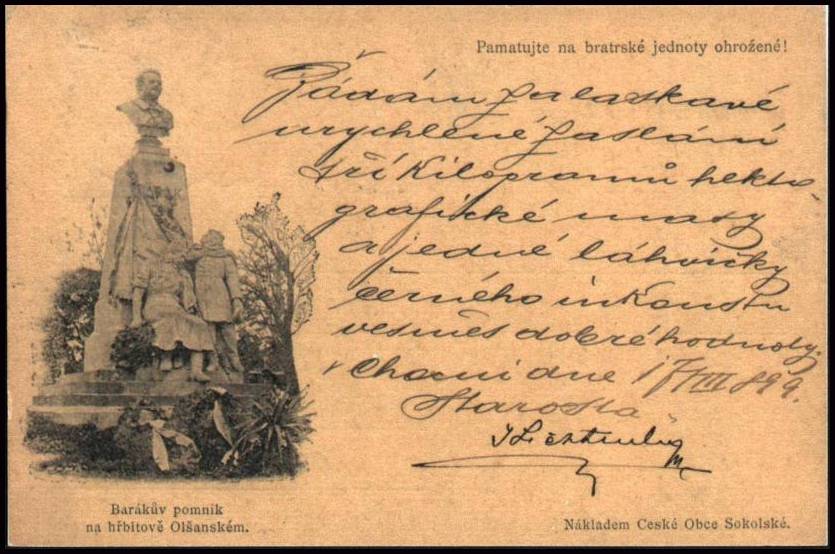 Pamatujte na bratrské jednoty ohrožené!
Žádám za laskavé
urychlené zaslání
tří kilogramů hekto-
grafické masy
a jedné láhvičky
černého inkoustu
vesměs dobré hodnoty.
dne 17/III 899.
Starosta
BARÁK
Barákův pomník
na hřbitově Olšanském.
Nákladem Ceské Obce Sokolské.